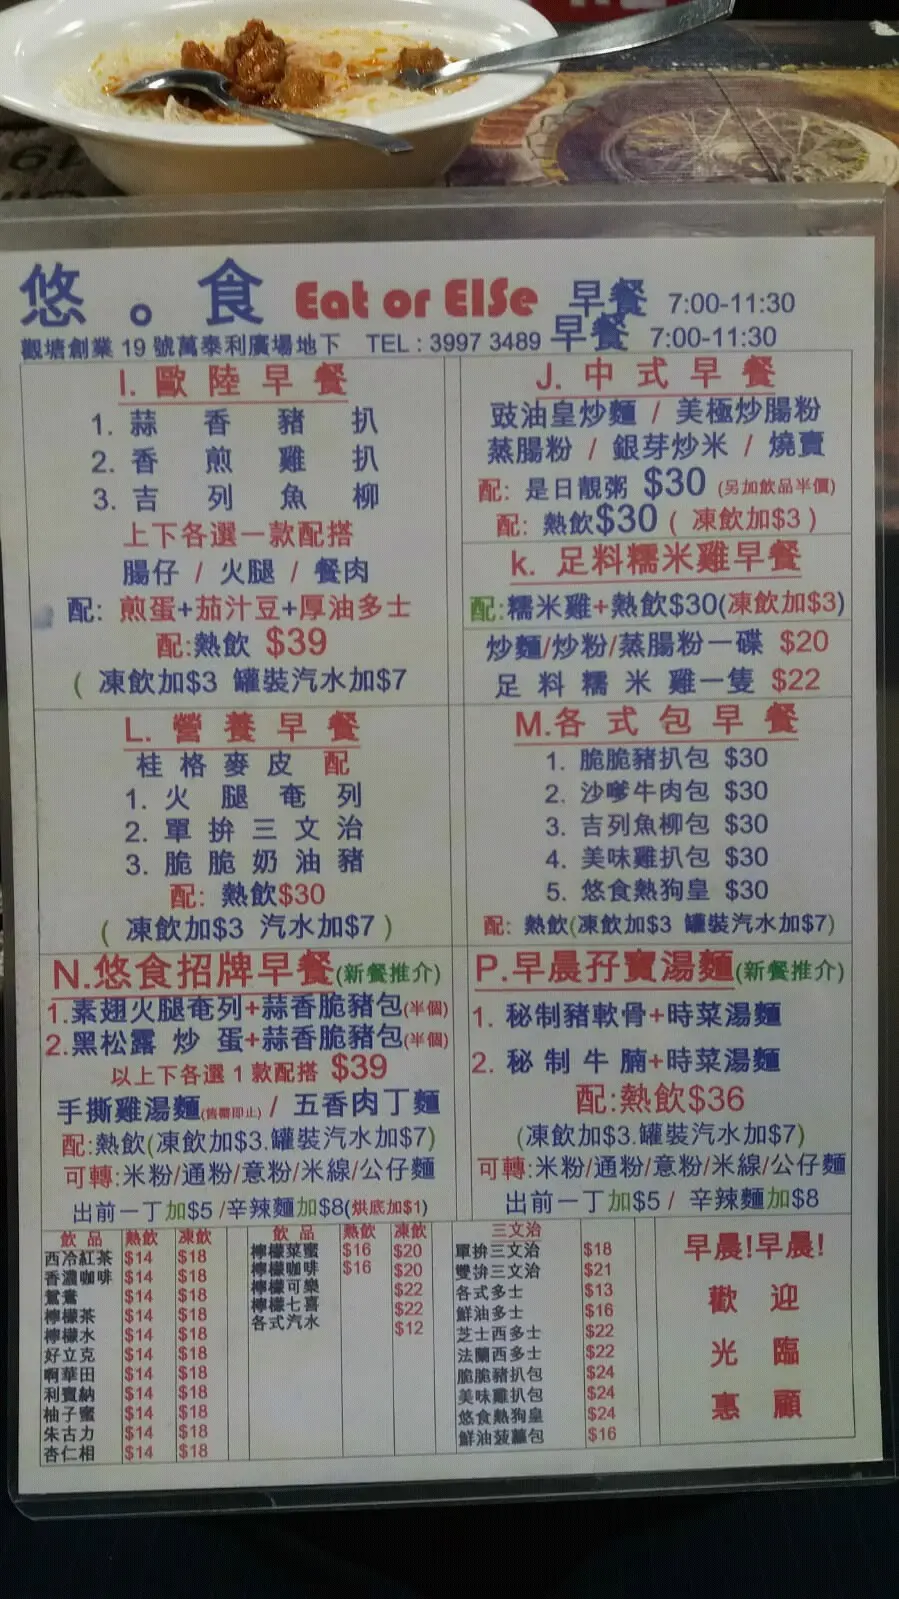 悠。食 Eat or ElSe 早餐 7:00-11:30
觀塘創業 19 號萬泰利廣場地下 TEL : 3997 3489 早餐 7:00-11:30
I. 歐陸早餐
1. 蒜香豬扒
2. 香煎雞扒
3. 吉列魚柳
上下各選一款配搭
腸仔 / 火腿 / 餐肉
配: 煎蛋+茄汁豆+厚油多士
配:熱飲 $39
( 凍飲加$3 罐裝汽水加$7
J. 中式早餐
豉油皇炒麵 / 美極炒腸粉
蒸腸粉 / 銀芽炒米 / 燒賣
配: 是日靚粥 $30 (另加飲品半價)
配: 熱飲$30 ( 凍飲加$3 )
k. 足料糯米雞早餐
配:糯米雞+熱飲$30(凍飲加$3)
炒麵/炒粉/蒸腸粉一碟 $20
足料糯米雞一隻 $22
L. 營養早餐
桂格麥皮 配
1. 火腿奄列
2. 單拚三文治
3. 脆脆奶油豬
配: 熱飲$30
( 凍飲加$3 汽水加$7 )
M.各式包早餐
1. 脆脆豬扒包 $30
2. 沙嗲牛肉包 $30
3. 吉列魚柳包 $30
4. 美味雞扒包 $30
5. 悠食熱狗皇 $30
配: 熱飲(凍飲加$3 罐裝汽水加$7)
N.悠食招牌早餐(新餐推介)
1.素翅火腿奄列+蒜香脆豬包(半個)
2.黑松露炒蛋+蒜香脆豬包(半個)
以上下各選 1 款配搭 $39
手撕雞湯麵(售罄即止) / 五香肉丁麵
配:熱飲(凍飲加$3.罐裝汽水加$7)
可轉:米粉/通粉/意粉/米線/公仔麵
出前一丁加$5 /辛辣麵加$8(烘底加$1)
P.早晨孖寶湯麵(新餐推介)
1. 秘制豬軟骨+時菜湯麵
2. 秘制牛腩+時菜湯麵
配:熱飲$36
(凍飲加$3.罐裝汽水加$7)
可轉:米粉/通粉/意粉/米線/公仔麵
出前一丁加$5 / 辛辣麵加$8
飲品 熱飲 凍飲
西冷紅茶 $14 $18
香濃咖啡 $14 $18
鴛鴦 $14 $18
檸檬茶 $14 $18
檸檬水 $14 $18
好立克 $14 $18
啊華田 $14 $18
利賓納 $14 $18
柚子蜜 $14 $18
朱古力 $14 $18
杏仁相 $14 $18
飲品 熱飲 凍飲
檸檬菜蜜 $16 $20
檸檬咖啡 $16 $20
檸檬可樂 $22
檸檬七喜 $22
各式汽水 $12
三文治
單拚三文治 $18
雙拚三文治 $21
各式多士 $13
鮮油多士 $16
芝士西多士 $22
法蘭西多士 $22
脆脆豬扒包 $24
美味雞扒包 $24
悠食熱狗皇 $24
鮮油菠蘿包 $16
早晨!早晨!
歡迎
光臨
惠顧